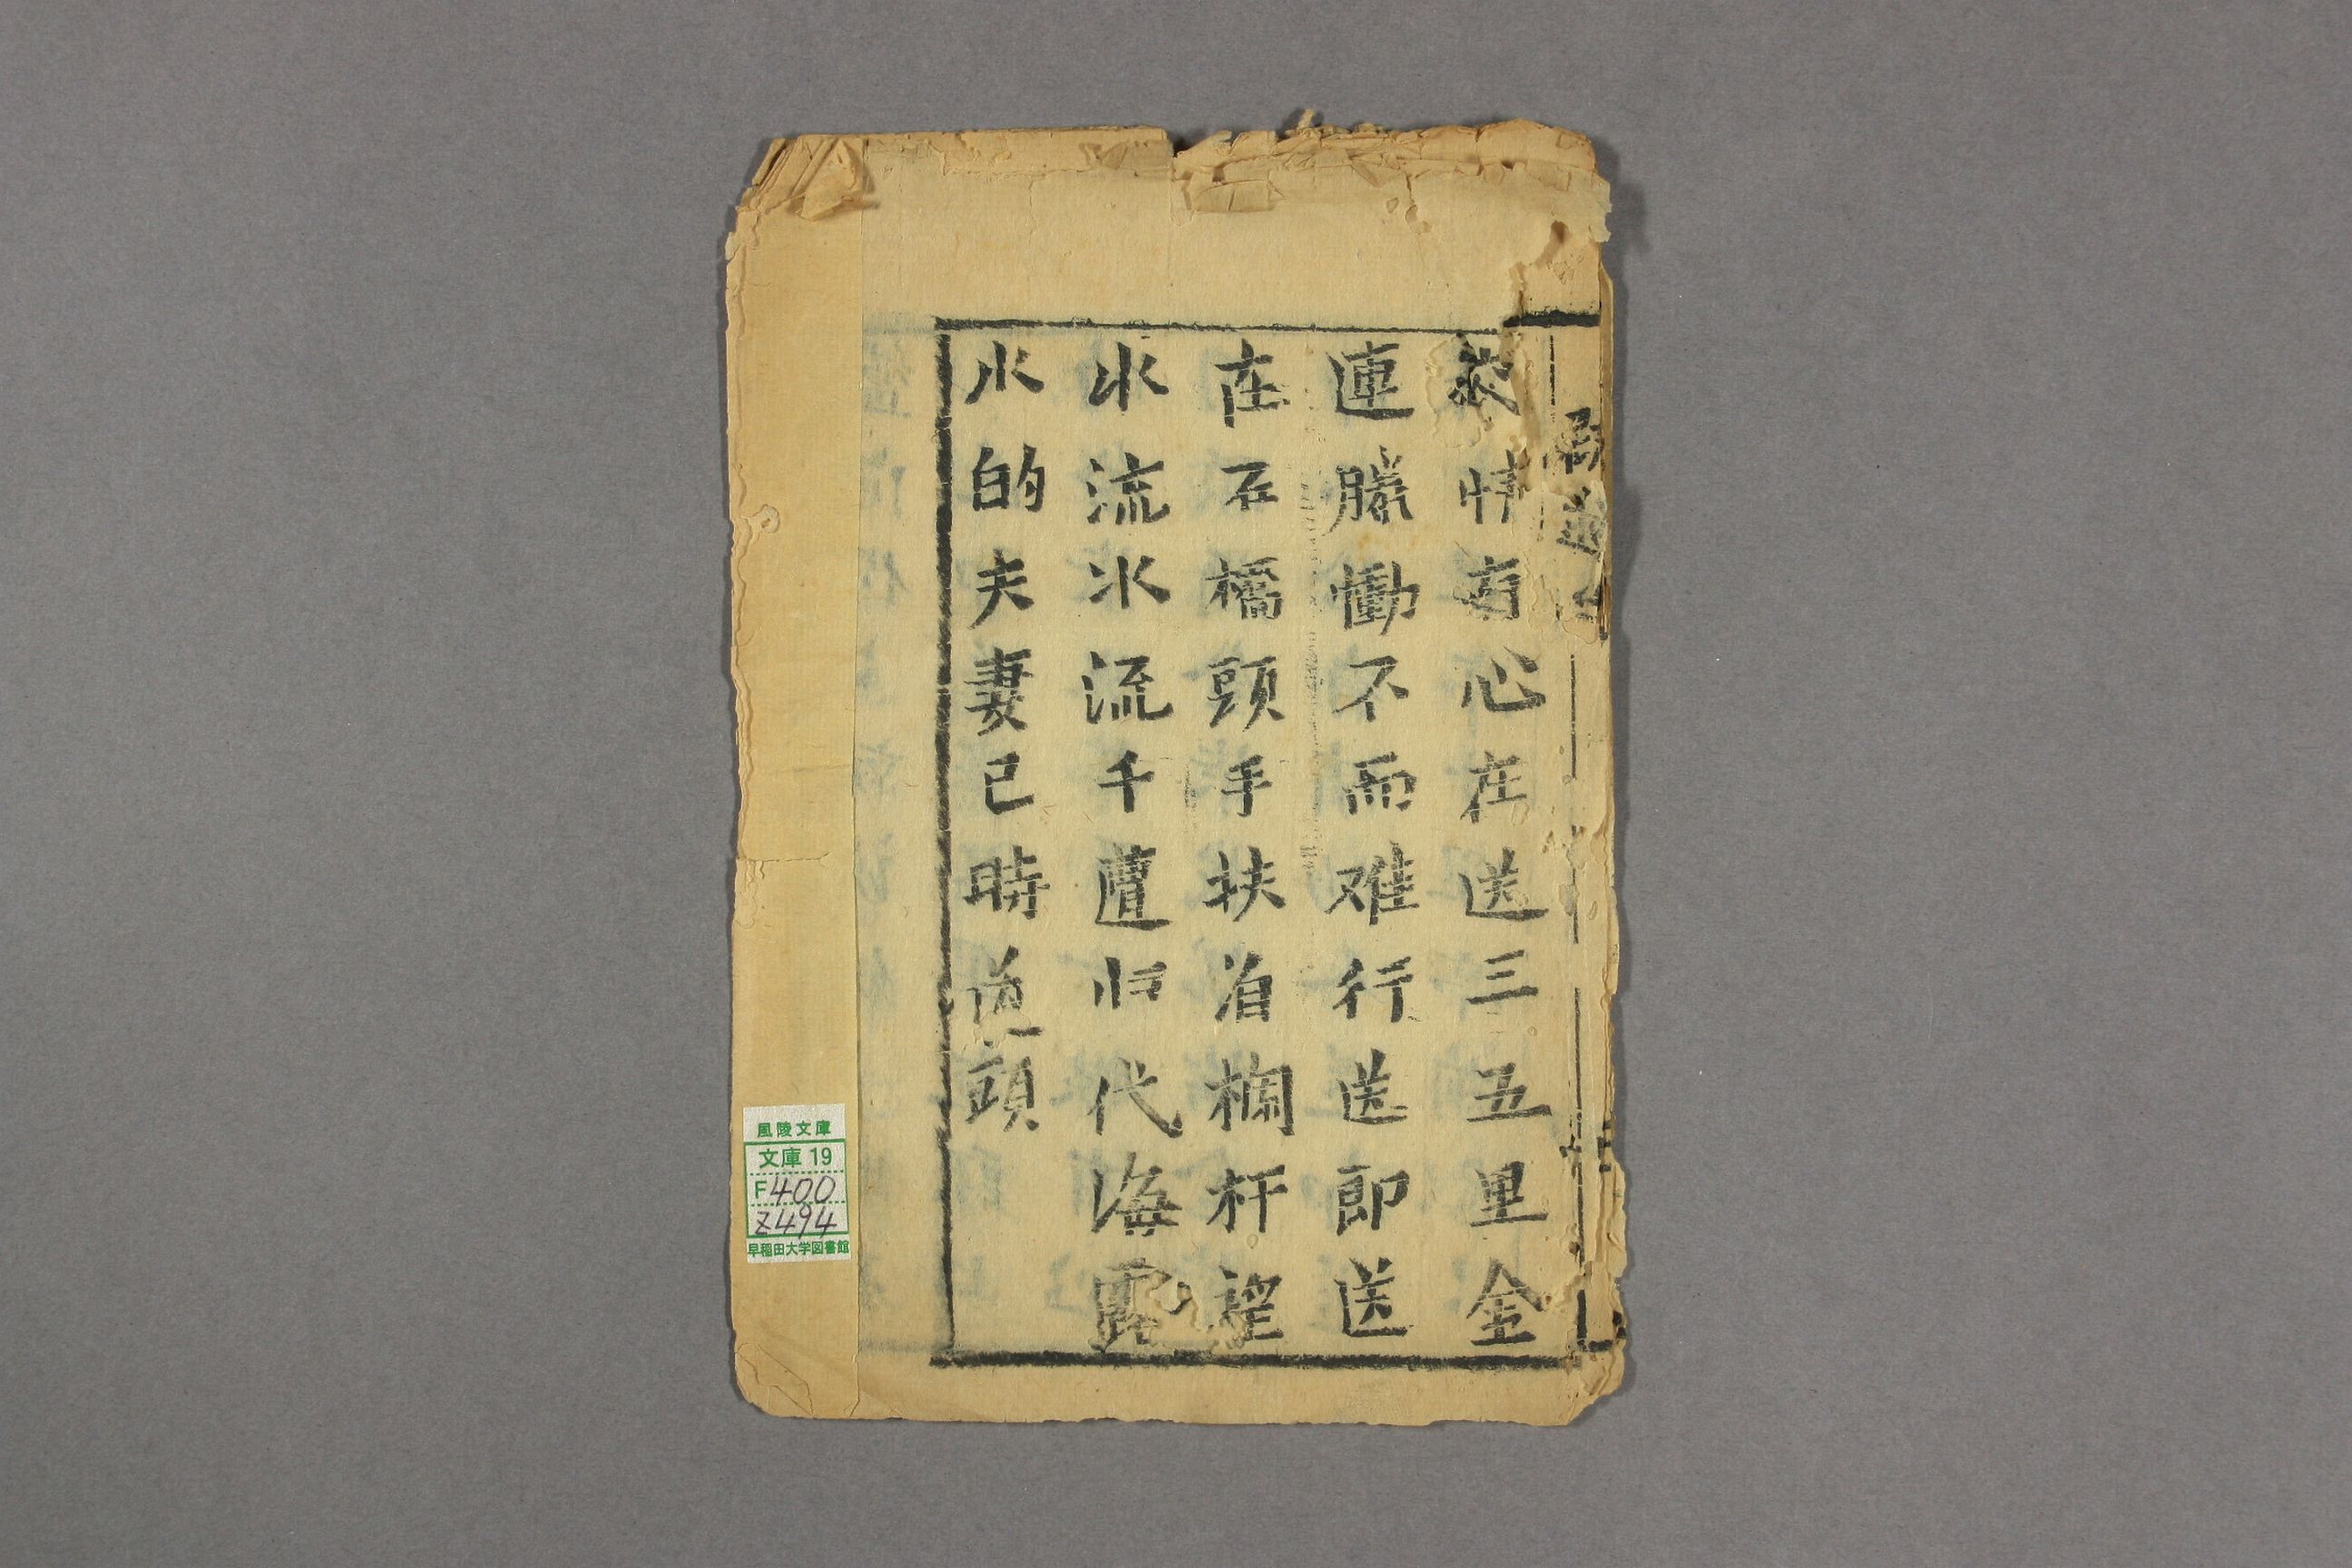 情有心在送三五里金
連勝慟不而难行送即送
在石橋頭手扶着欄杆望
水流水流千遭归代海露
水的夫妻已時道頭
風陵文庫
文庫 19
F400
Z494
早稲田大学図書館